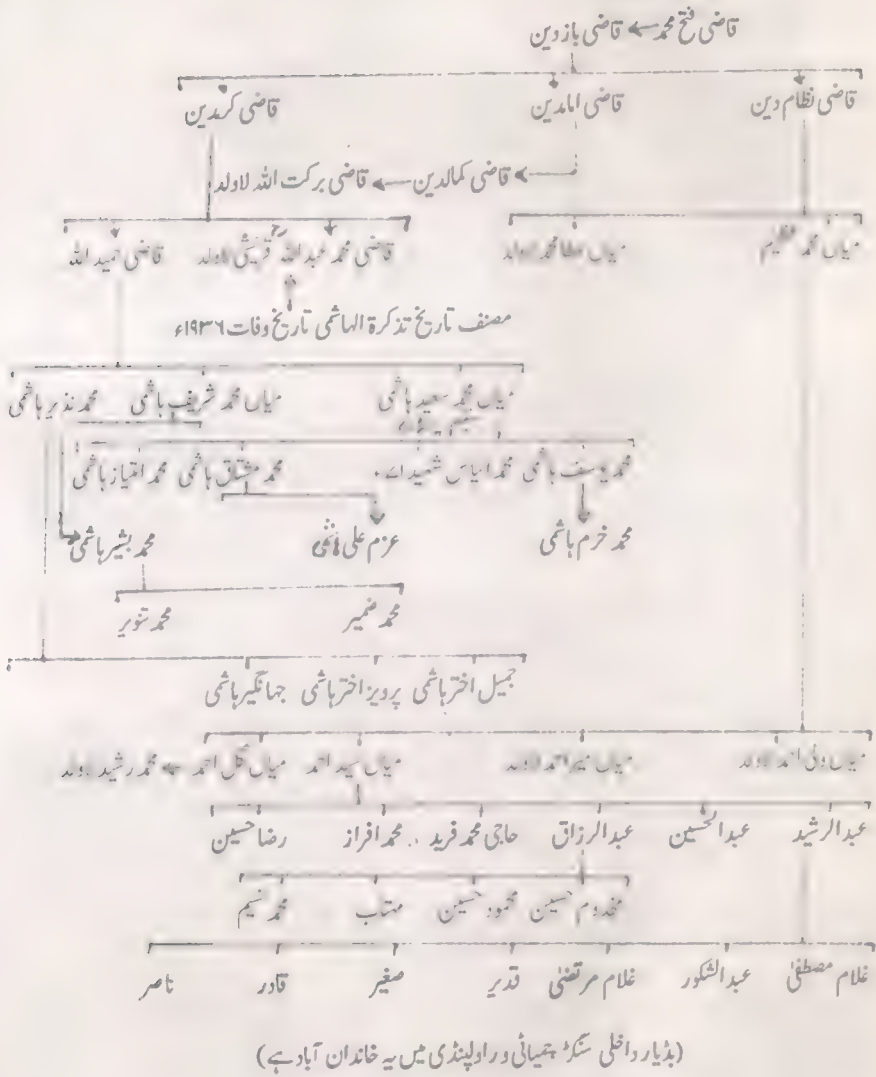 قاضی فتح محمد ← قاضی باز دین
قاضی نظام دین قاضی امامدین قاضی کرمدین
قاضی کمالدین ← قاضی برکت اللہ لاولد
میاں محمد عظیم میاں عطا محمد لاولد قاضی محمد عبداللہ قریشیؒ لاولد قاضی حمید اللہ
مصنف تاریخ تذکرۃ الہاشمی تاریخ وفات ۱۹۳۶ء
میاں محمد سعید ہاشمی میاں محمد شریف ہاشمی محمد نذیر ہاشمی
محمد یوسف ہاشمی محمد الیاس شہید محمد مشتاق ہاشمی محمد امتیاز ہاشمی
محمد خرم ہاشمی عزم علی ہاشمی محمد بشیر ہاشمی
محمد ضمیر محمد تنویر
جمیل اختر ہاشمی پرویز اختر ہاشمی جہانگیر ہاشمی
میاں ولی احمد لاولد میاں منیر احمد لاولد میاں سید احمد میاں گل احمد ← محمد رشید لاولد
عبدالرشید عبدالحسین عبدالرزاق حاجی محمد فرید محمد افراز رضا حسین
مخدوم حسین محمود حسین مہتاب محمد نسیم
غلام مصطفیٰ عبدالشکور غلام مرتضیٰ قدیر صغیر قادر ناصر
(بڈیار داخلی سنگڑ ہتمیائی و راولپنڈی میں یہ خاندان آباد ہے)